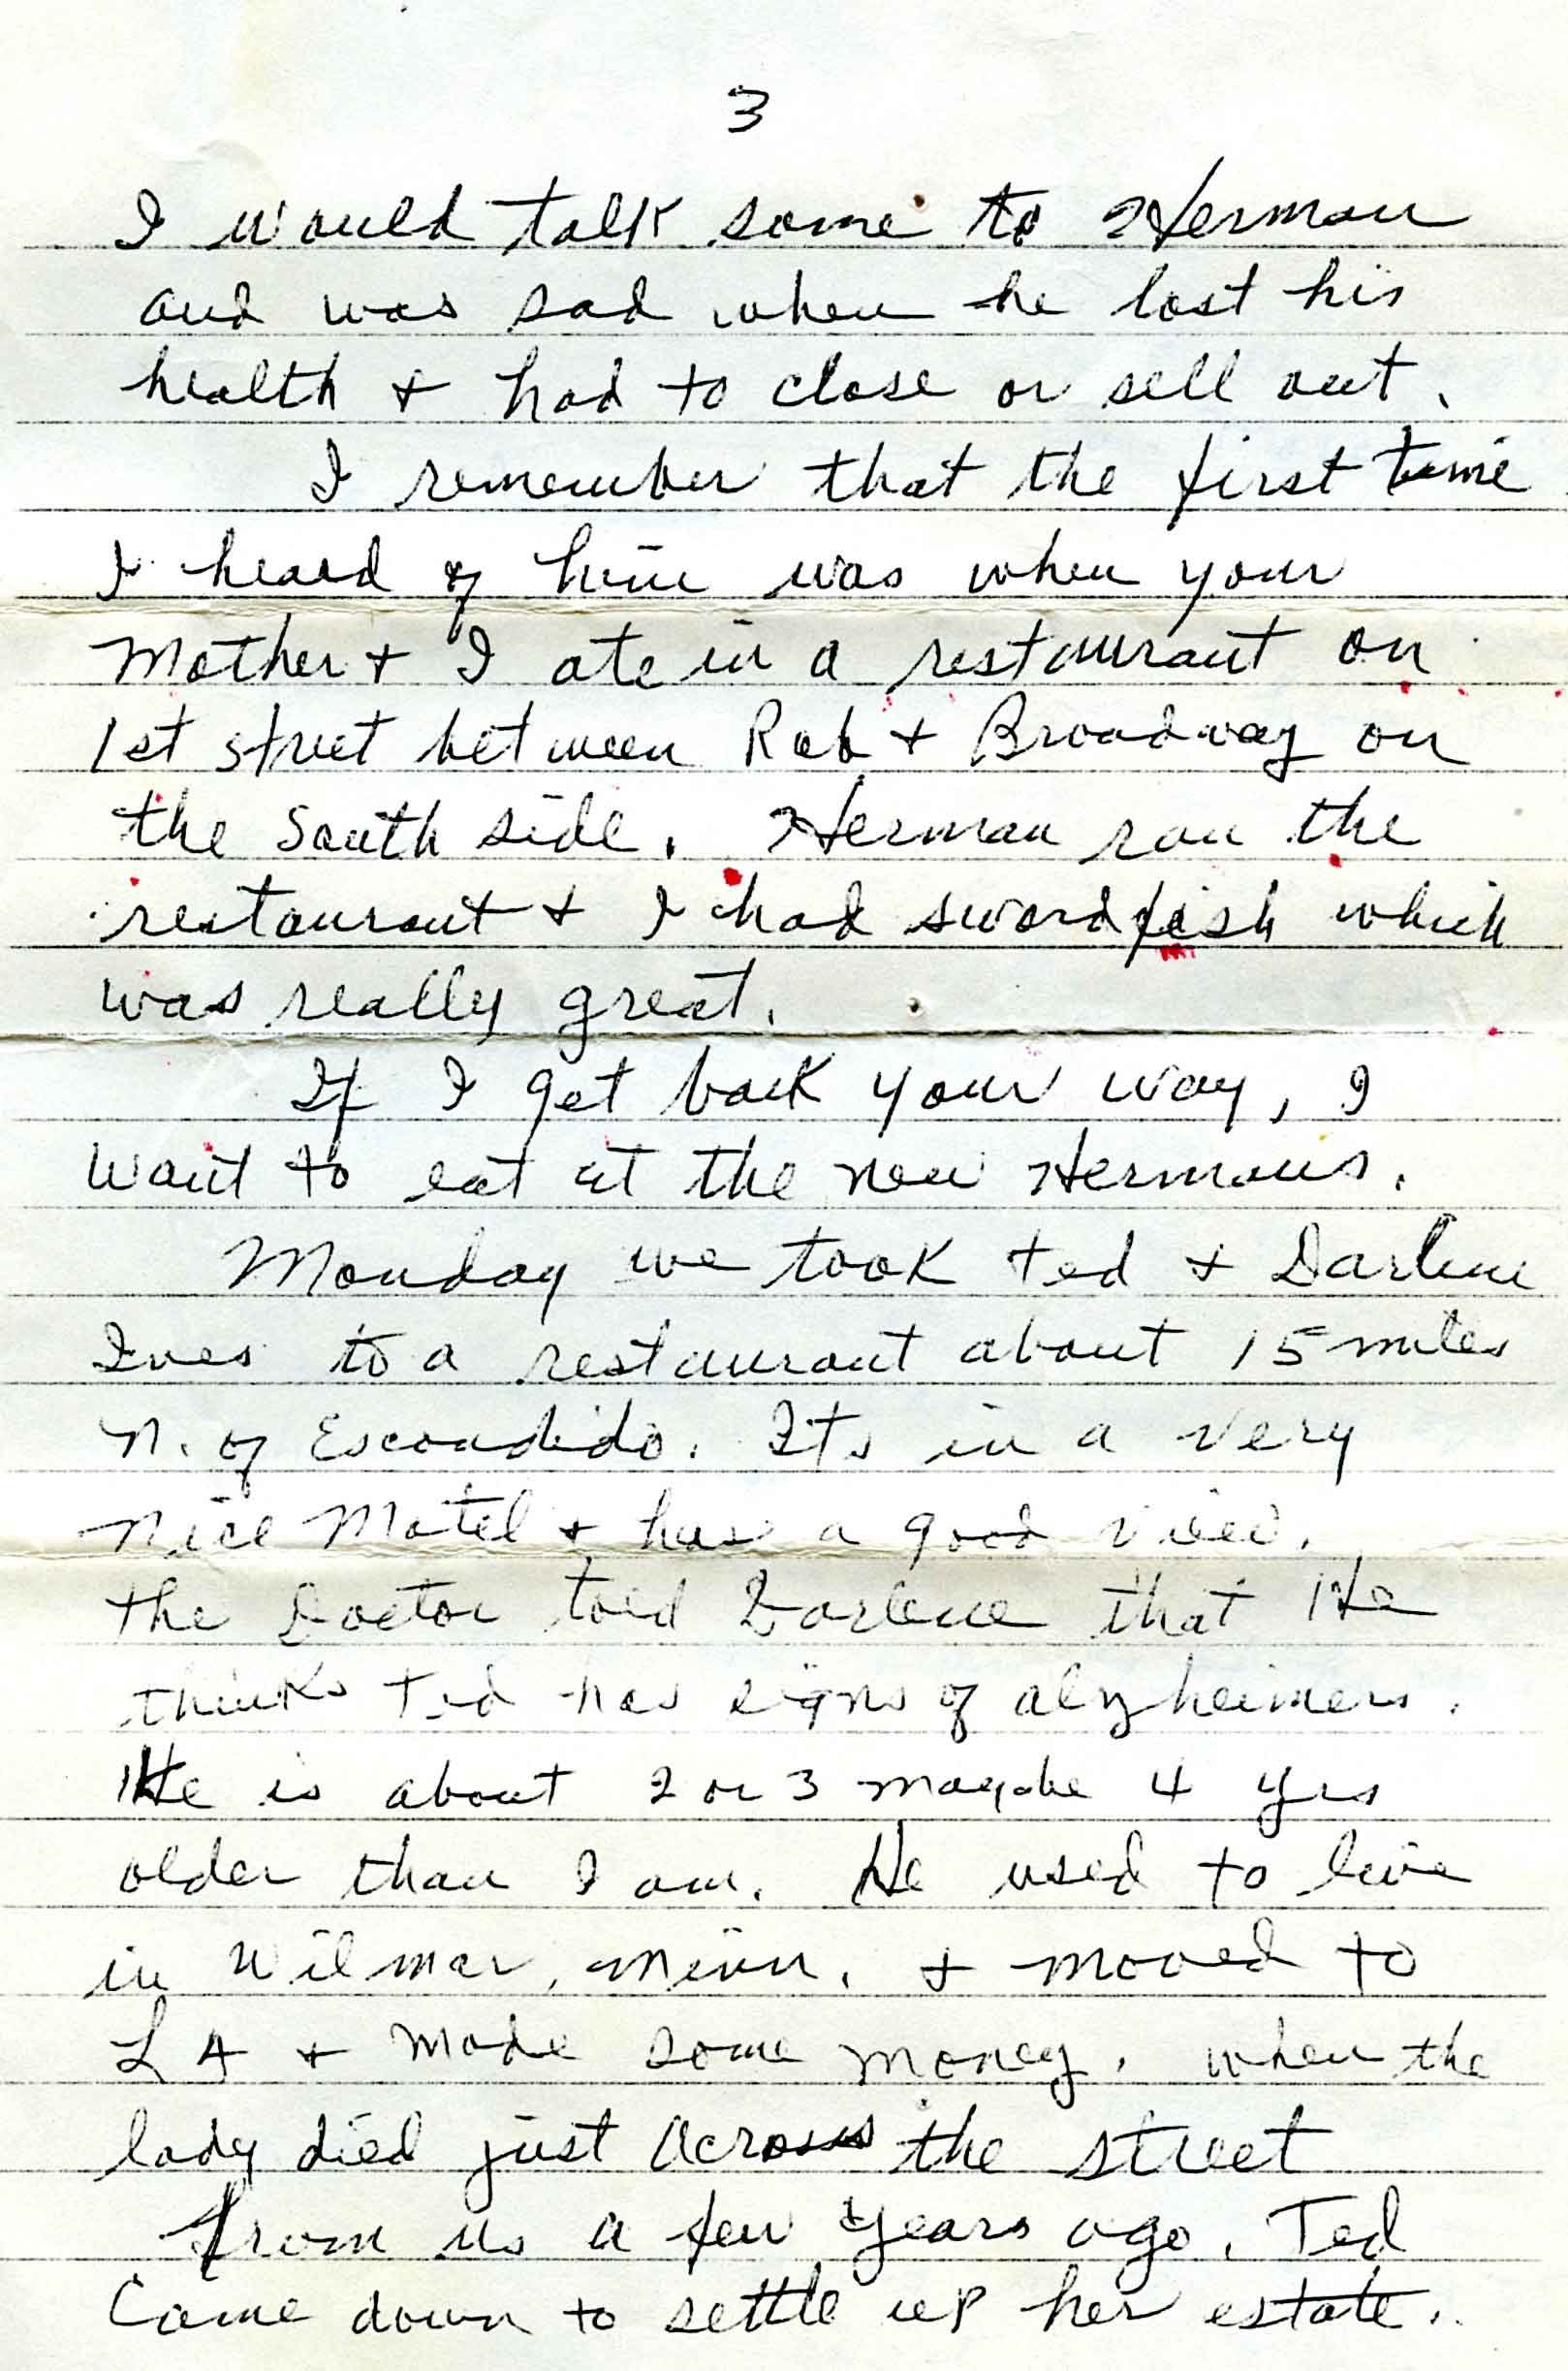 3
I would talk some to Herman
and was sad when he lost his
health + had to close or sell out.
I remember that the first time
I heard of him was when your
Mother + I ate in a restaurant on
1st street between Rob + Broadway on
the South side. Herman ran the
restaurant + I had swordfish which
was really great.
If I get back your way, I
want to eat at the new Hermans.
Monday we took Ted + Darlene
Ives to a restaurant about 15 miles
N. of Escondido. Its in a very
nice Motel + has a good view.
the Doctor told Darlene that He
thinks Ted has signs of alzheimers.
He is about 2 or 3 maybe 4 yrs
older than I am. He used to live
in Wilmar, Minn. + moved to
LA + made some money. when the
lady died just across the street
from us a few years ago. Ted
Came down to settle up her estate.